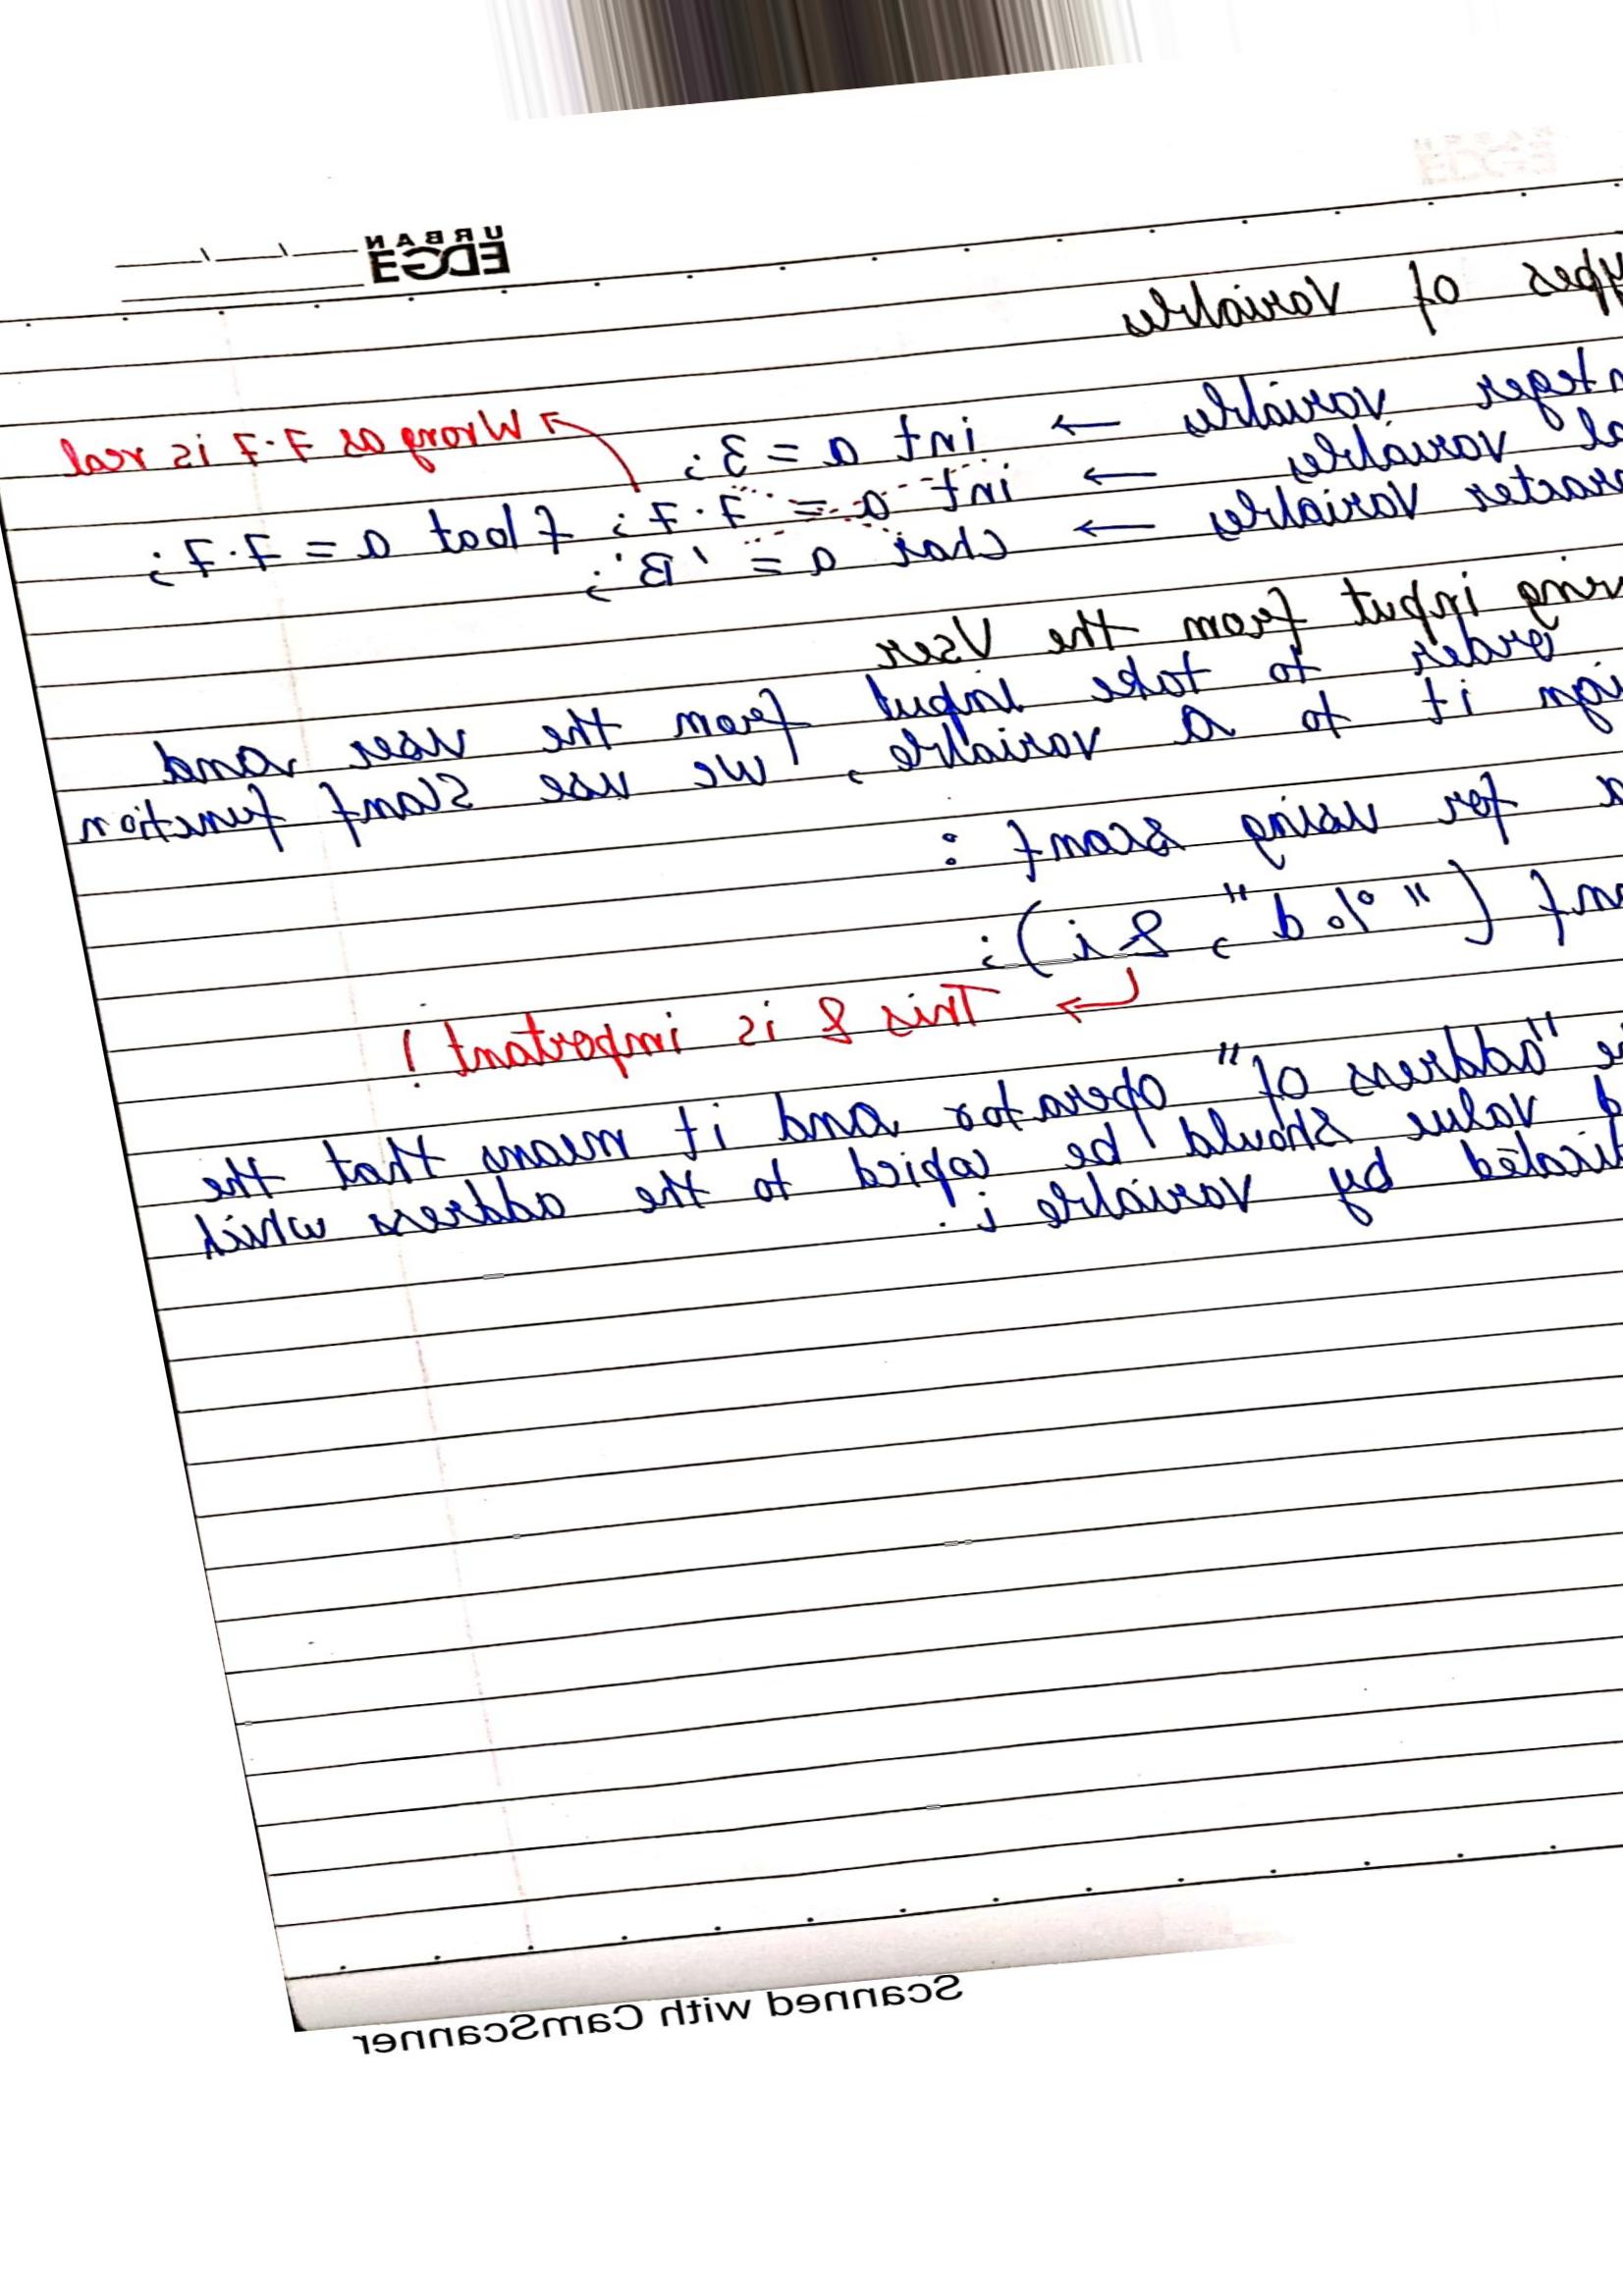 URBAN
EDGE
ypes of Variables
nteger variables → int a = 3;
al variables → int a = 7.7; float a = 7.7;
Wrong as 7.7 is real
racter variables → char a = 'B';
ving input from the User
order to take input from the user and
ign it to a variable, we use scanf function
x for using scanf :
nf ("%d", &i);
→ This & is improtant !
e "address of" operator and it means that the
d value should be copied to the address which
dicated by variable i.
Scanned with CamScanner